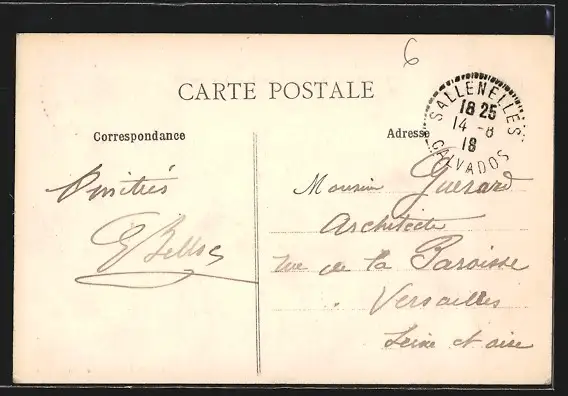 6
CARTE POSTALE
SALLENELLES
18 25
14 -8
18
CALVADOS
Correspondance
Adresse
Amitiés
Monsieur Guerard
Architecte
rue de la Paroisse
Versailles
Seine et oise